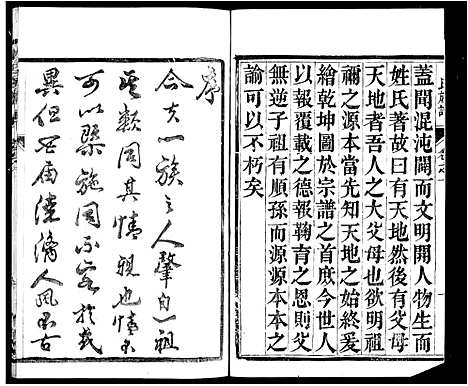 蓋聞混沌闢而文明開人物生而
姓氏著故曰有天地然後有父母
天地者吾人之大父母也欲明祖
禰之源本當先知天地之始終爰
繪乾坤圖於宗譜之首庶今世人
以報覆載之德報鞠育之恩則父
無逆子祖有順孫而源源本本之
諭可以不朽矣
序
合夫一族之人肇自一祖
其類同其情親也情本
可以槩施固不容於或
異但世庙人風不古